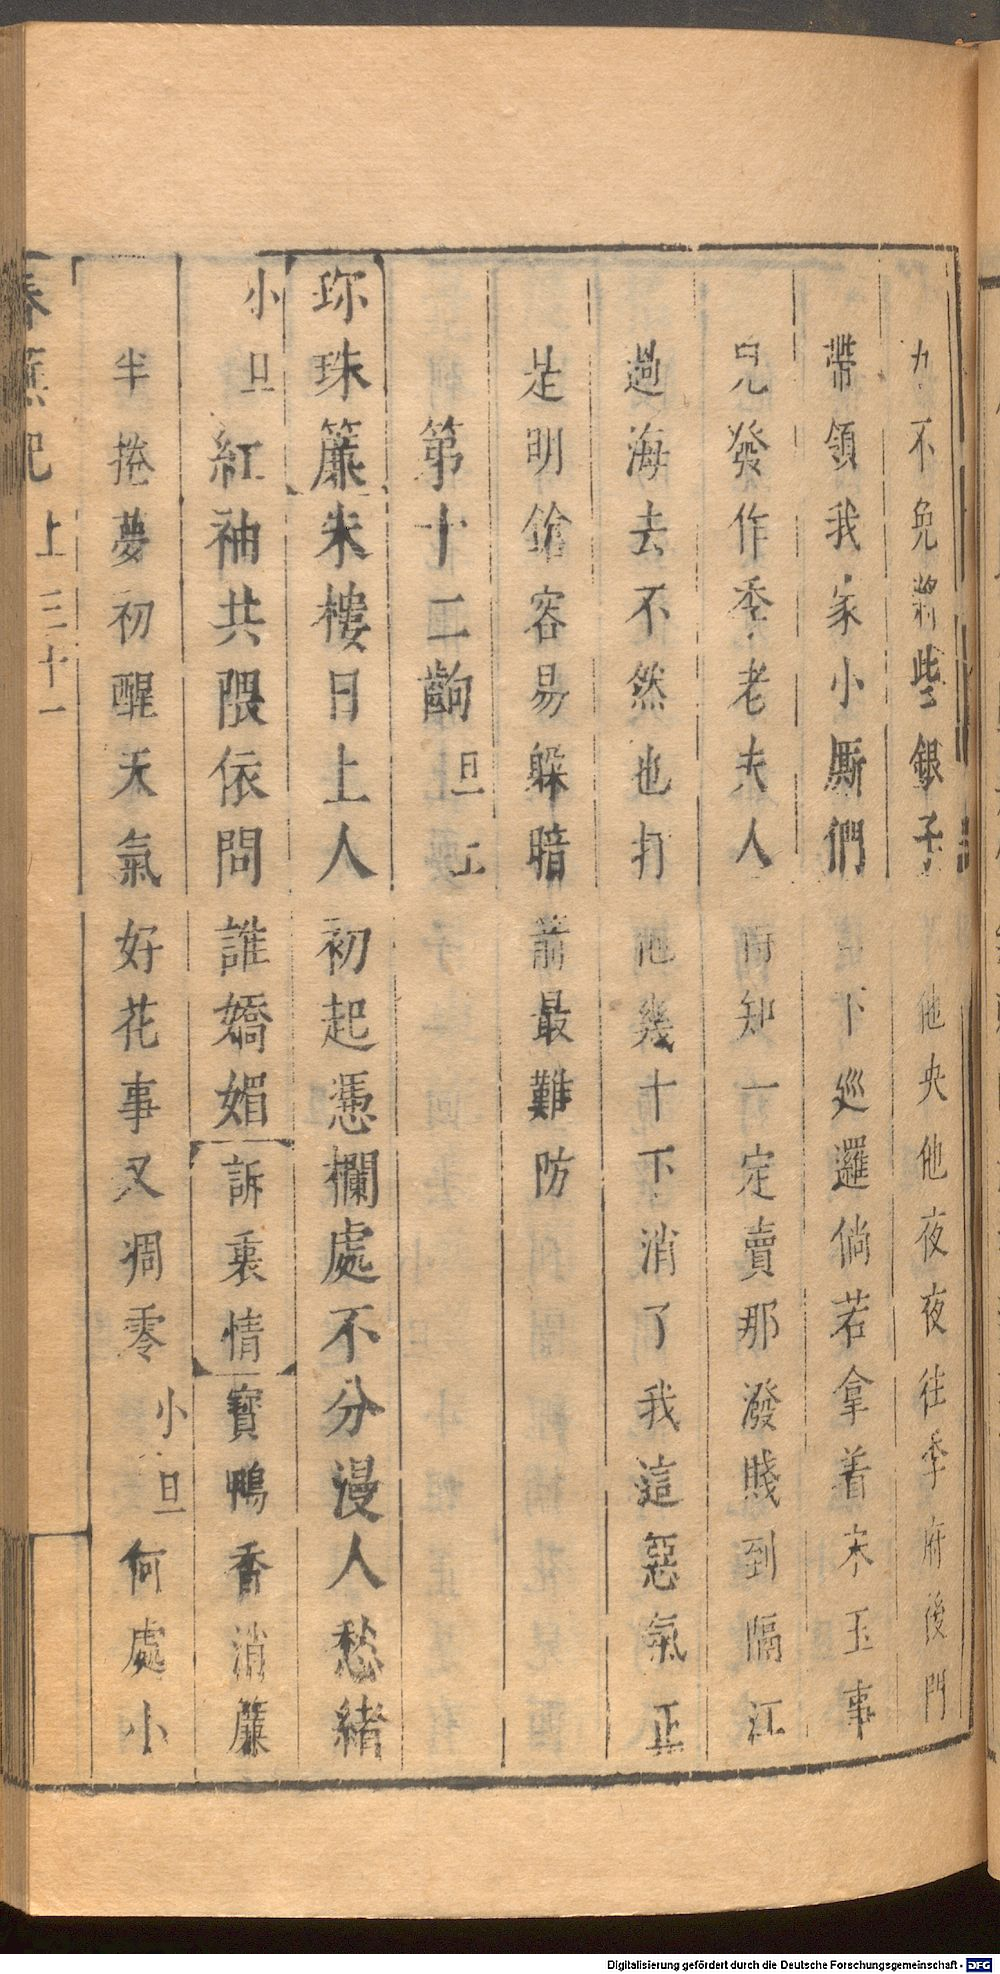 九不免將些銀子他央他夜夜往季府後門
帶領我家小厮們下巡邏倘若拿着宋玉事
兄發作季老夫人得知一定賣那潑賤到隔江
過海去不然也打他幾十下消了我這惡氣正
是明鎗容易躲暗箭最難防
第十二齣 旦上
珎珠簾朱樓日上人初起憑欄處不分漫人愁緒
小旦紅袖共隈依問誰嬌媚訴衷情寶鴨香消簾
半捲夢初醒天氣好花事又凋零小旦何處小
春蕪記 上 三十一
Digitalisierung gefördert durch die Deutsche Forschungsgemeinschaft - DFG